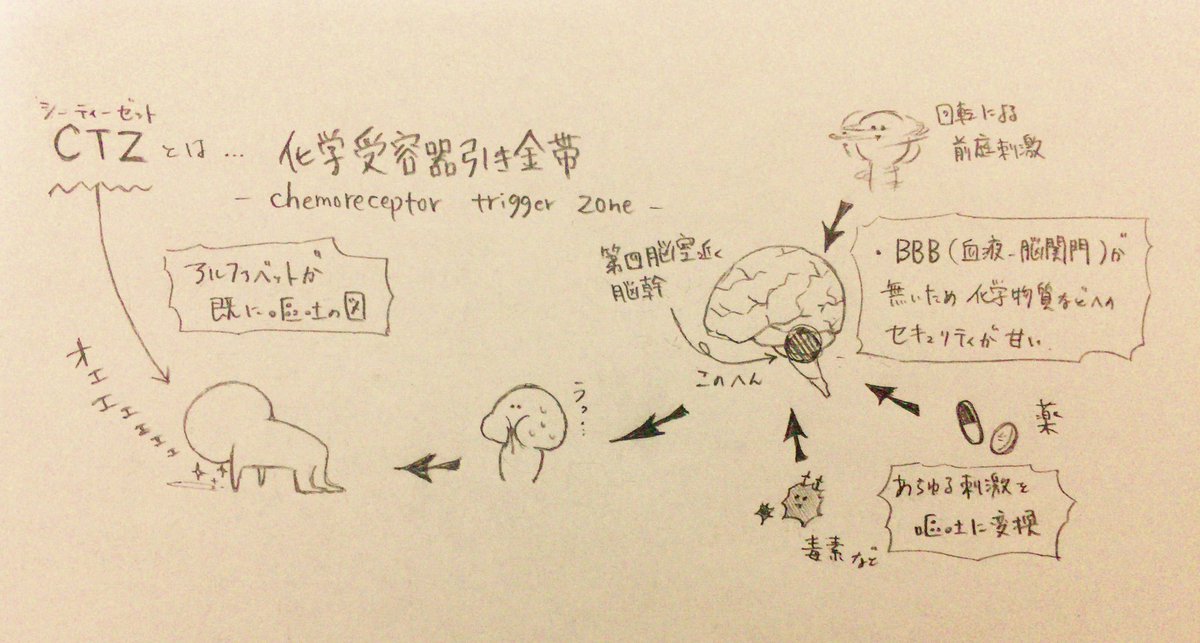 シーティーゼット
CTZ とは… 化学受容器引き金帯
- chemoreceptor trigger zone -
アルファベットが
既に嘔吐の図
オエエエエエエエ
うっ…
第四脳室近く
脳幹
このへん
回転による
前庭刺激
・BBB(血液-脳関門)が
無いため化学物質などへの
セキュリティが甘い.
薬
あらゆる刺激を
嘔吐に変換
毒素など